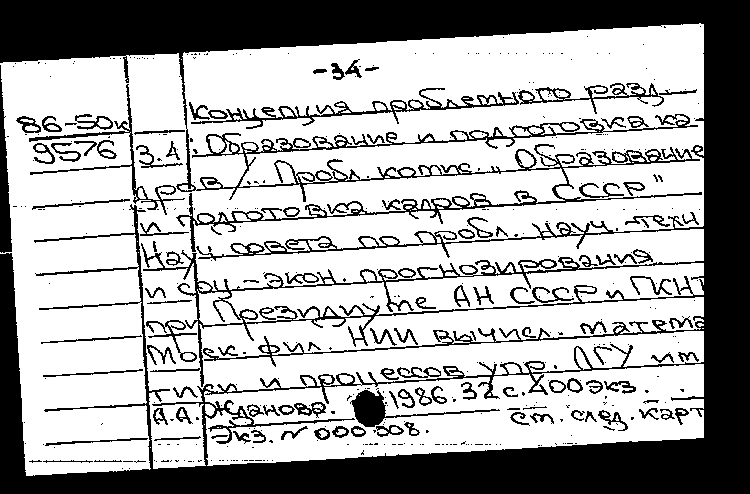 -34-
Концепция проблемного разд.
86-50к
9576
3.4 : Образование и подготовка ка-
дров / ... Пробл. комис. „Образование
и подготовка кадров в СССР"
Науч. совета по пробл. науч.-техн
и соц.-экон. прогнозирования
при Президиуме АН СССР и ГКНТ
Моск. фил. НИИ вычисл. матема
тики и процессов упр. ЛГУ им
А.А. Жданова. 1986. 32 с. 400 экз.
Экз. № 000308. Ст. след. карт